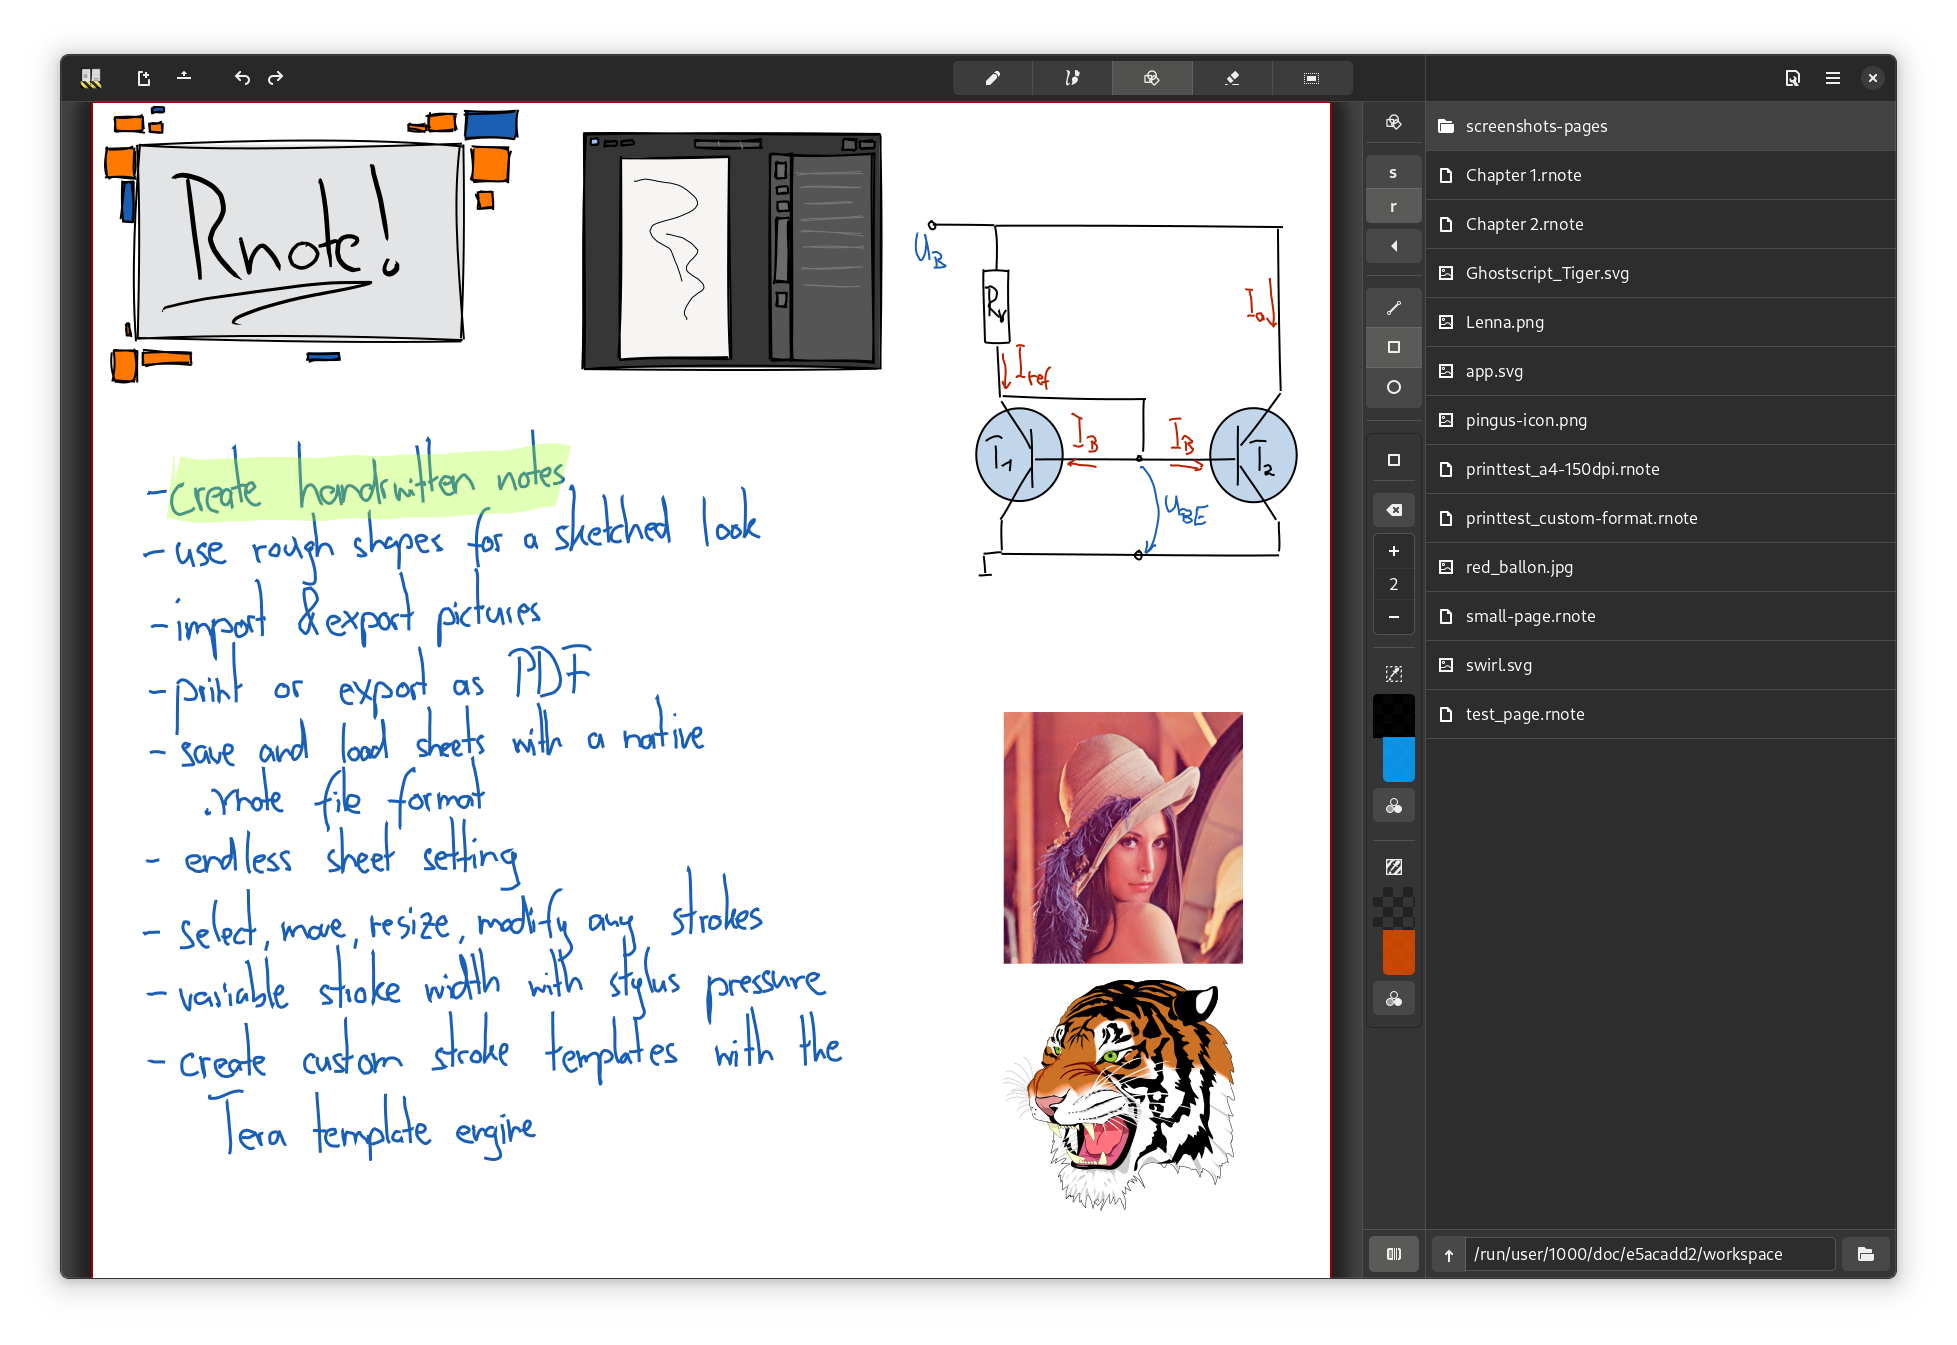 Rnote!
U_B
R_v
I_a
I_ref
I_B
I_B
T_1
T_2
U_BE
- Create handwritten notes
- use rough shapes for a sketched look
- import & export pictures
- print or export as PDF
- save and load sheets with a native
.rnote file format
- endless sheet setting
- select, move, resize, modify any strokes
- variable stroke width with stylus pressure
- create custom stroke templates with the
Tera template engine
s
r
2
screenshots-pages
Chapter 1.rnote
Chapter 2.rnote
Ghostscript_Tiger.svg
Lenna.png
app.svg
pingus-icon.png
printtest_a4-150dpi.rnote
printtest_custom-format.rnote
red_ballon.jpg
small-page.rnote
swirl.svg
test_page.rnote
/run/user/1000/doc/e5acadd2/workspace